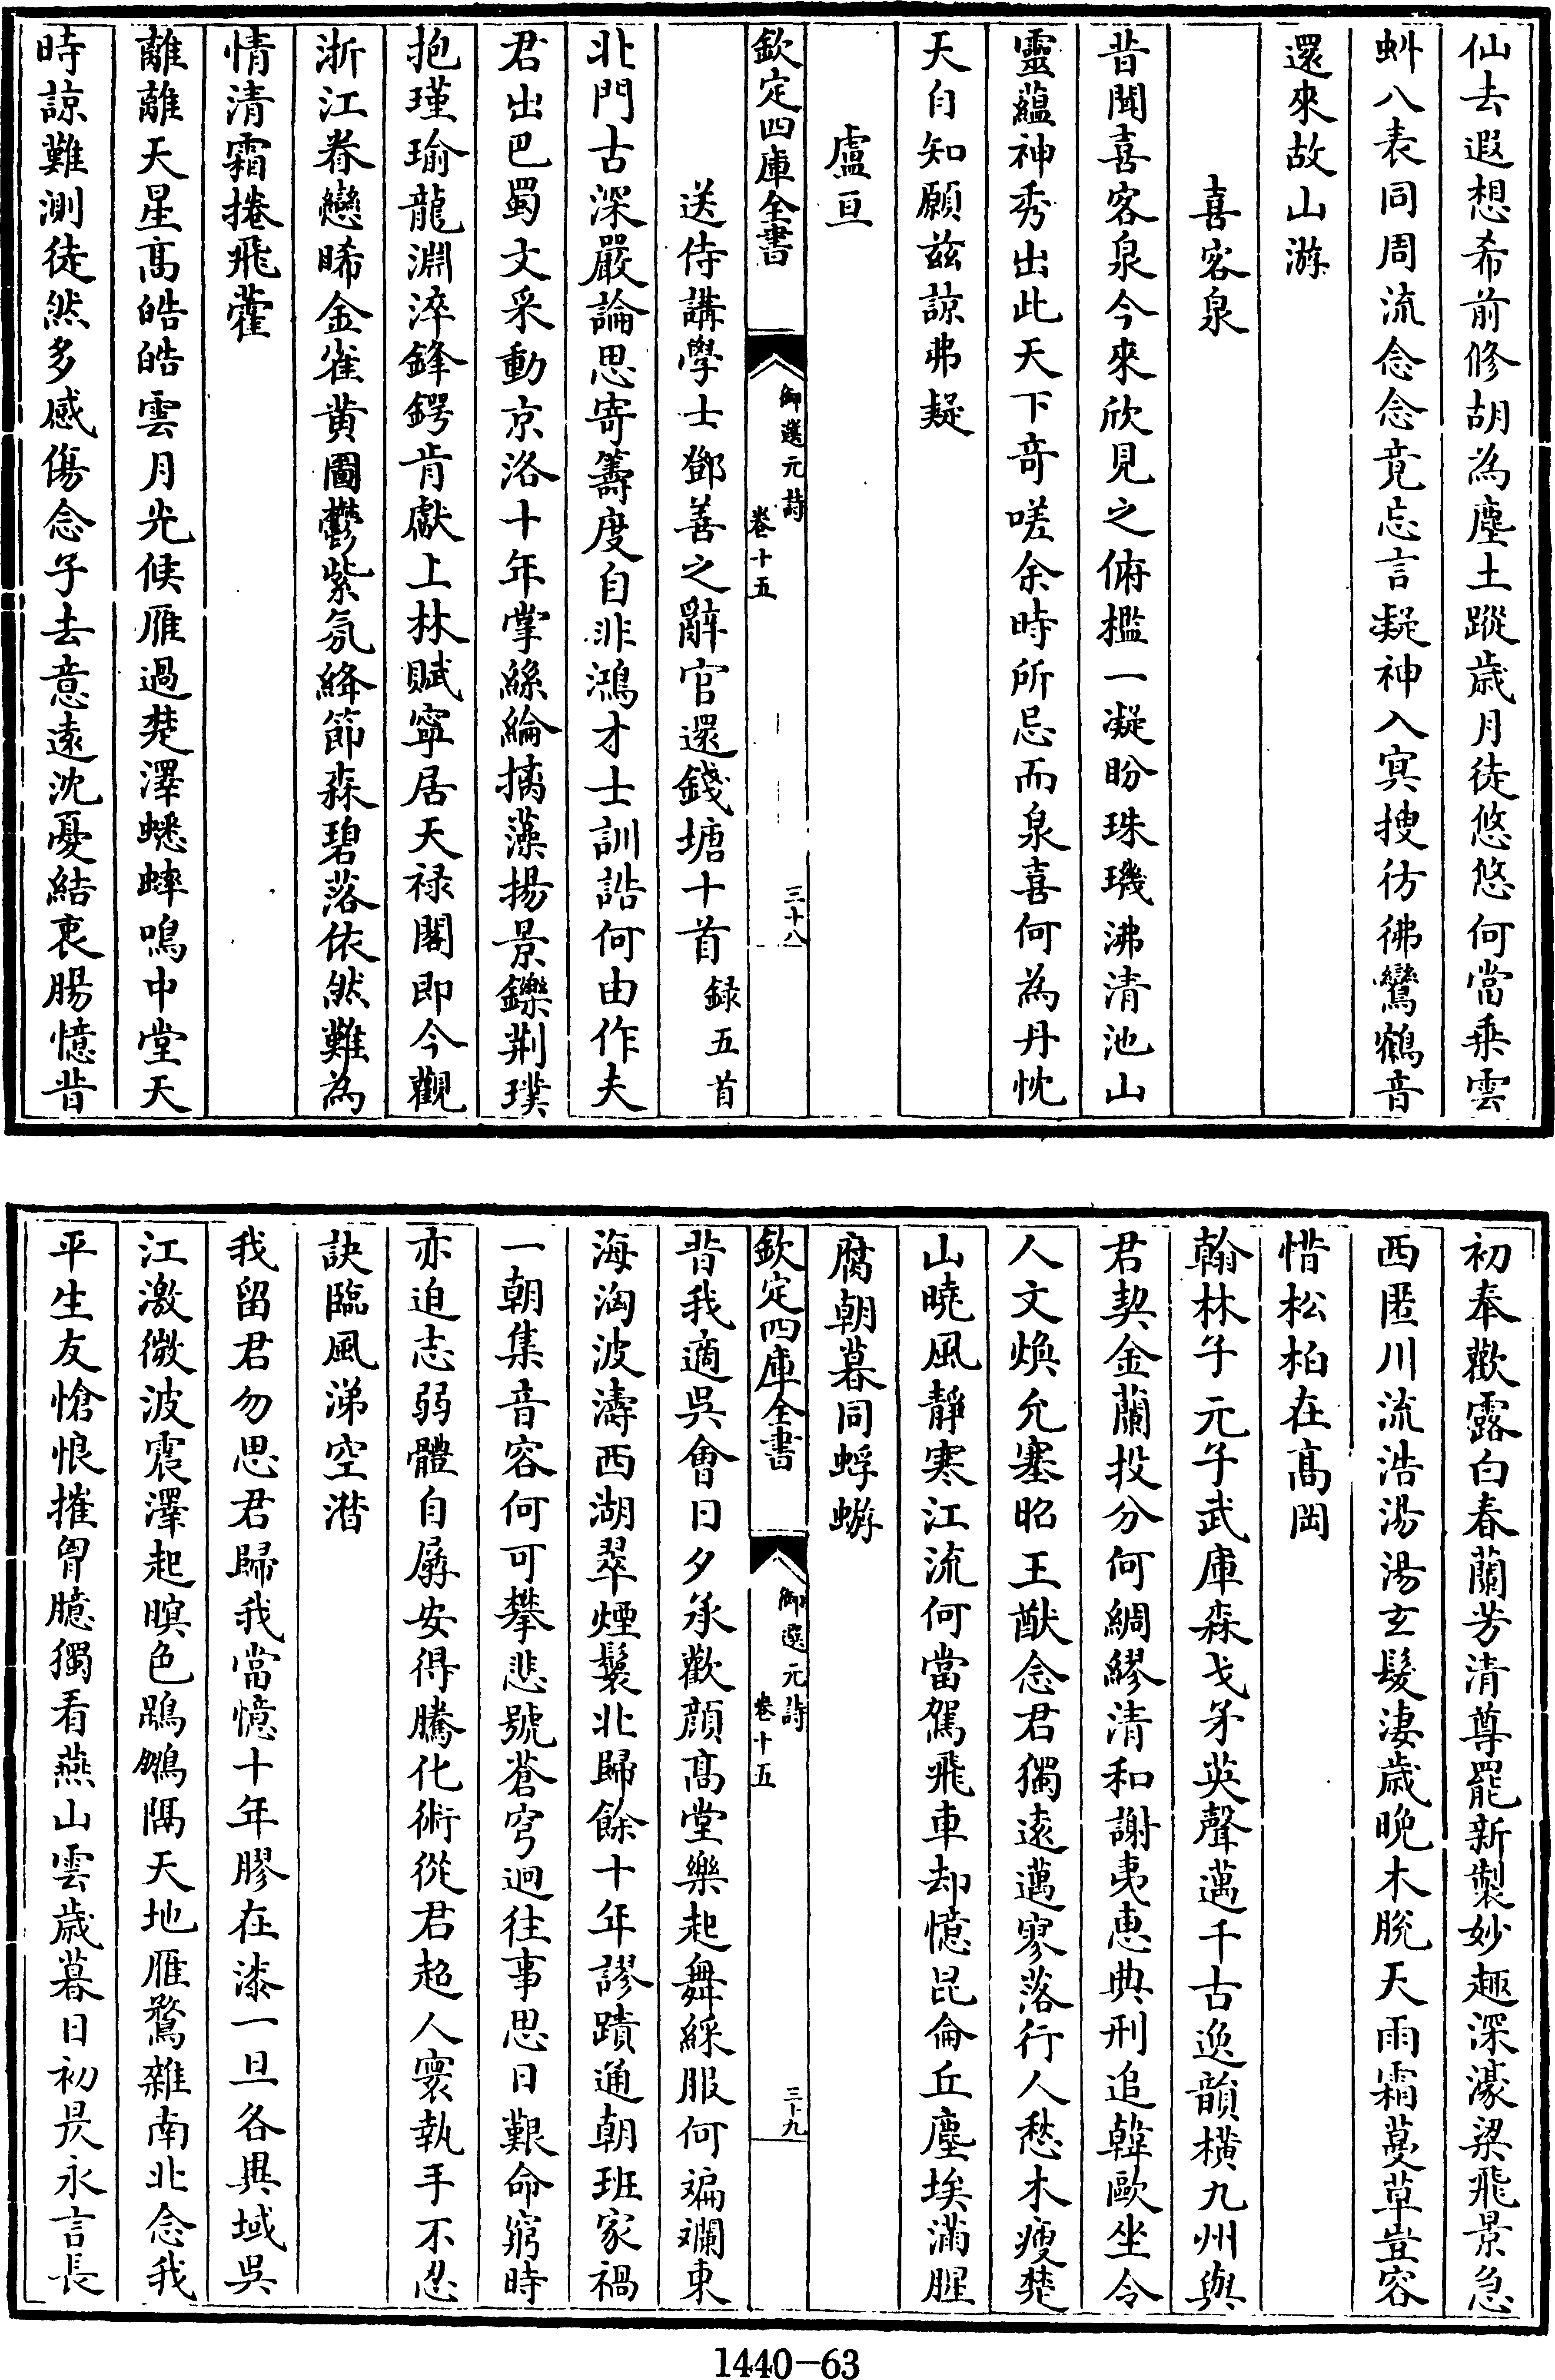 仙去遐想希前修胡為塵土蹤歲月徒悠悠何當乗雲
虯八表同周流念念竟忘言凝神入冥搜彷彿鸞鶴音
還來故山游
喜客泉
昔聞喜客泉今來欣見之俯檻一凝盼珠璣沸清池山
靈藴神秀出此天下竒嗟余時所忌而泉喜何為丹忱
天自知願兹諒弗疑
盧亘
送侍講學士鄧善之辭官還錢塘十首錄五首
北門古深嚴論思寄籌度自非鴻才士訓誥何由作夫
君出巴蜀文采動京洛十年掌絲綸摛藻揚景鑠荆璞
抱瑾瑜龍淵淬鋒鍔肯獻上林賦寜居天禄閣即今觀
浙江眷戀晞金雀黄圖鬱紫氛絳節森碧落依然難為
情清霜捲飛藿
離離天星高皓皓雲月光候雁過楚澤蟋蟀鳴中堂天
時諒難測徒然多感傷念子去意逺沈憂結衷腸憶昔
欽定四庫全書
御選元詩
卷十五
三十八
初奉歡露白春蘭芳清尊罷新製妙趣深濠梁飛景急
西匿川流浩湯湯玄髮凄歲晩木脱天雨霜蔓草豈容
惜松柏在髙岡
翰林子元子武庫森戈矛英聲邁千古逸韻横九州與
君契金蘭投分何綢繆清和謝夷惠典刑追韓歐坐令
人文煥允塞昭王猷念君獨逺邁寥落行人愁木瘦楚
山曉風靜寒江流何當駕飛車却憶昆侖丘塵埃滿腥
腐朝暮同蜉蝣
昔我適吳會日夕承歡顔髙堂樂起舞綵服何斒斕東
海洶波濤西湖翠煙鬟北歸餘十年謬蹟通朝班家禍
一朝集音容何可攀悲號蒼穹迥往事思日艱命窮時
亦迫志弱體自孱安得騰化術從君超人寰執手不忍
訣臨風涕空潸
我留君勿思君歸我當憶十年膠在漆一旦各異域吳
江激微波震澤起暝色鵾鵬隔天地雁鶩雜南北念我
平生友愴恨摧胷臆獨看燕山雲歲暮日初昃永言長
欽定四庫全書
御選元詩
卷十五
三十九
1440-63